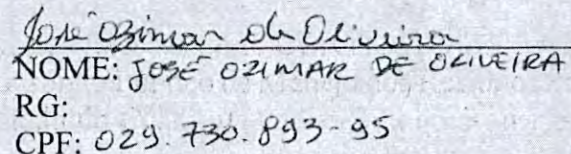 José Ozimar de Oliveira
NOME: JOSÉ OZIMAR DE OLIVEIRA
RG:
CPF: 029.730.893-95